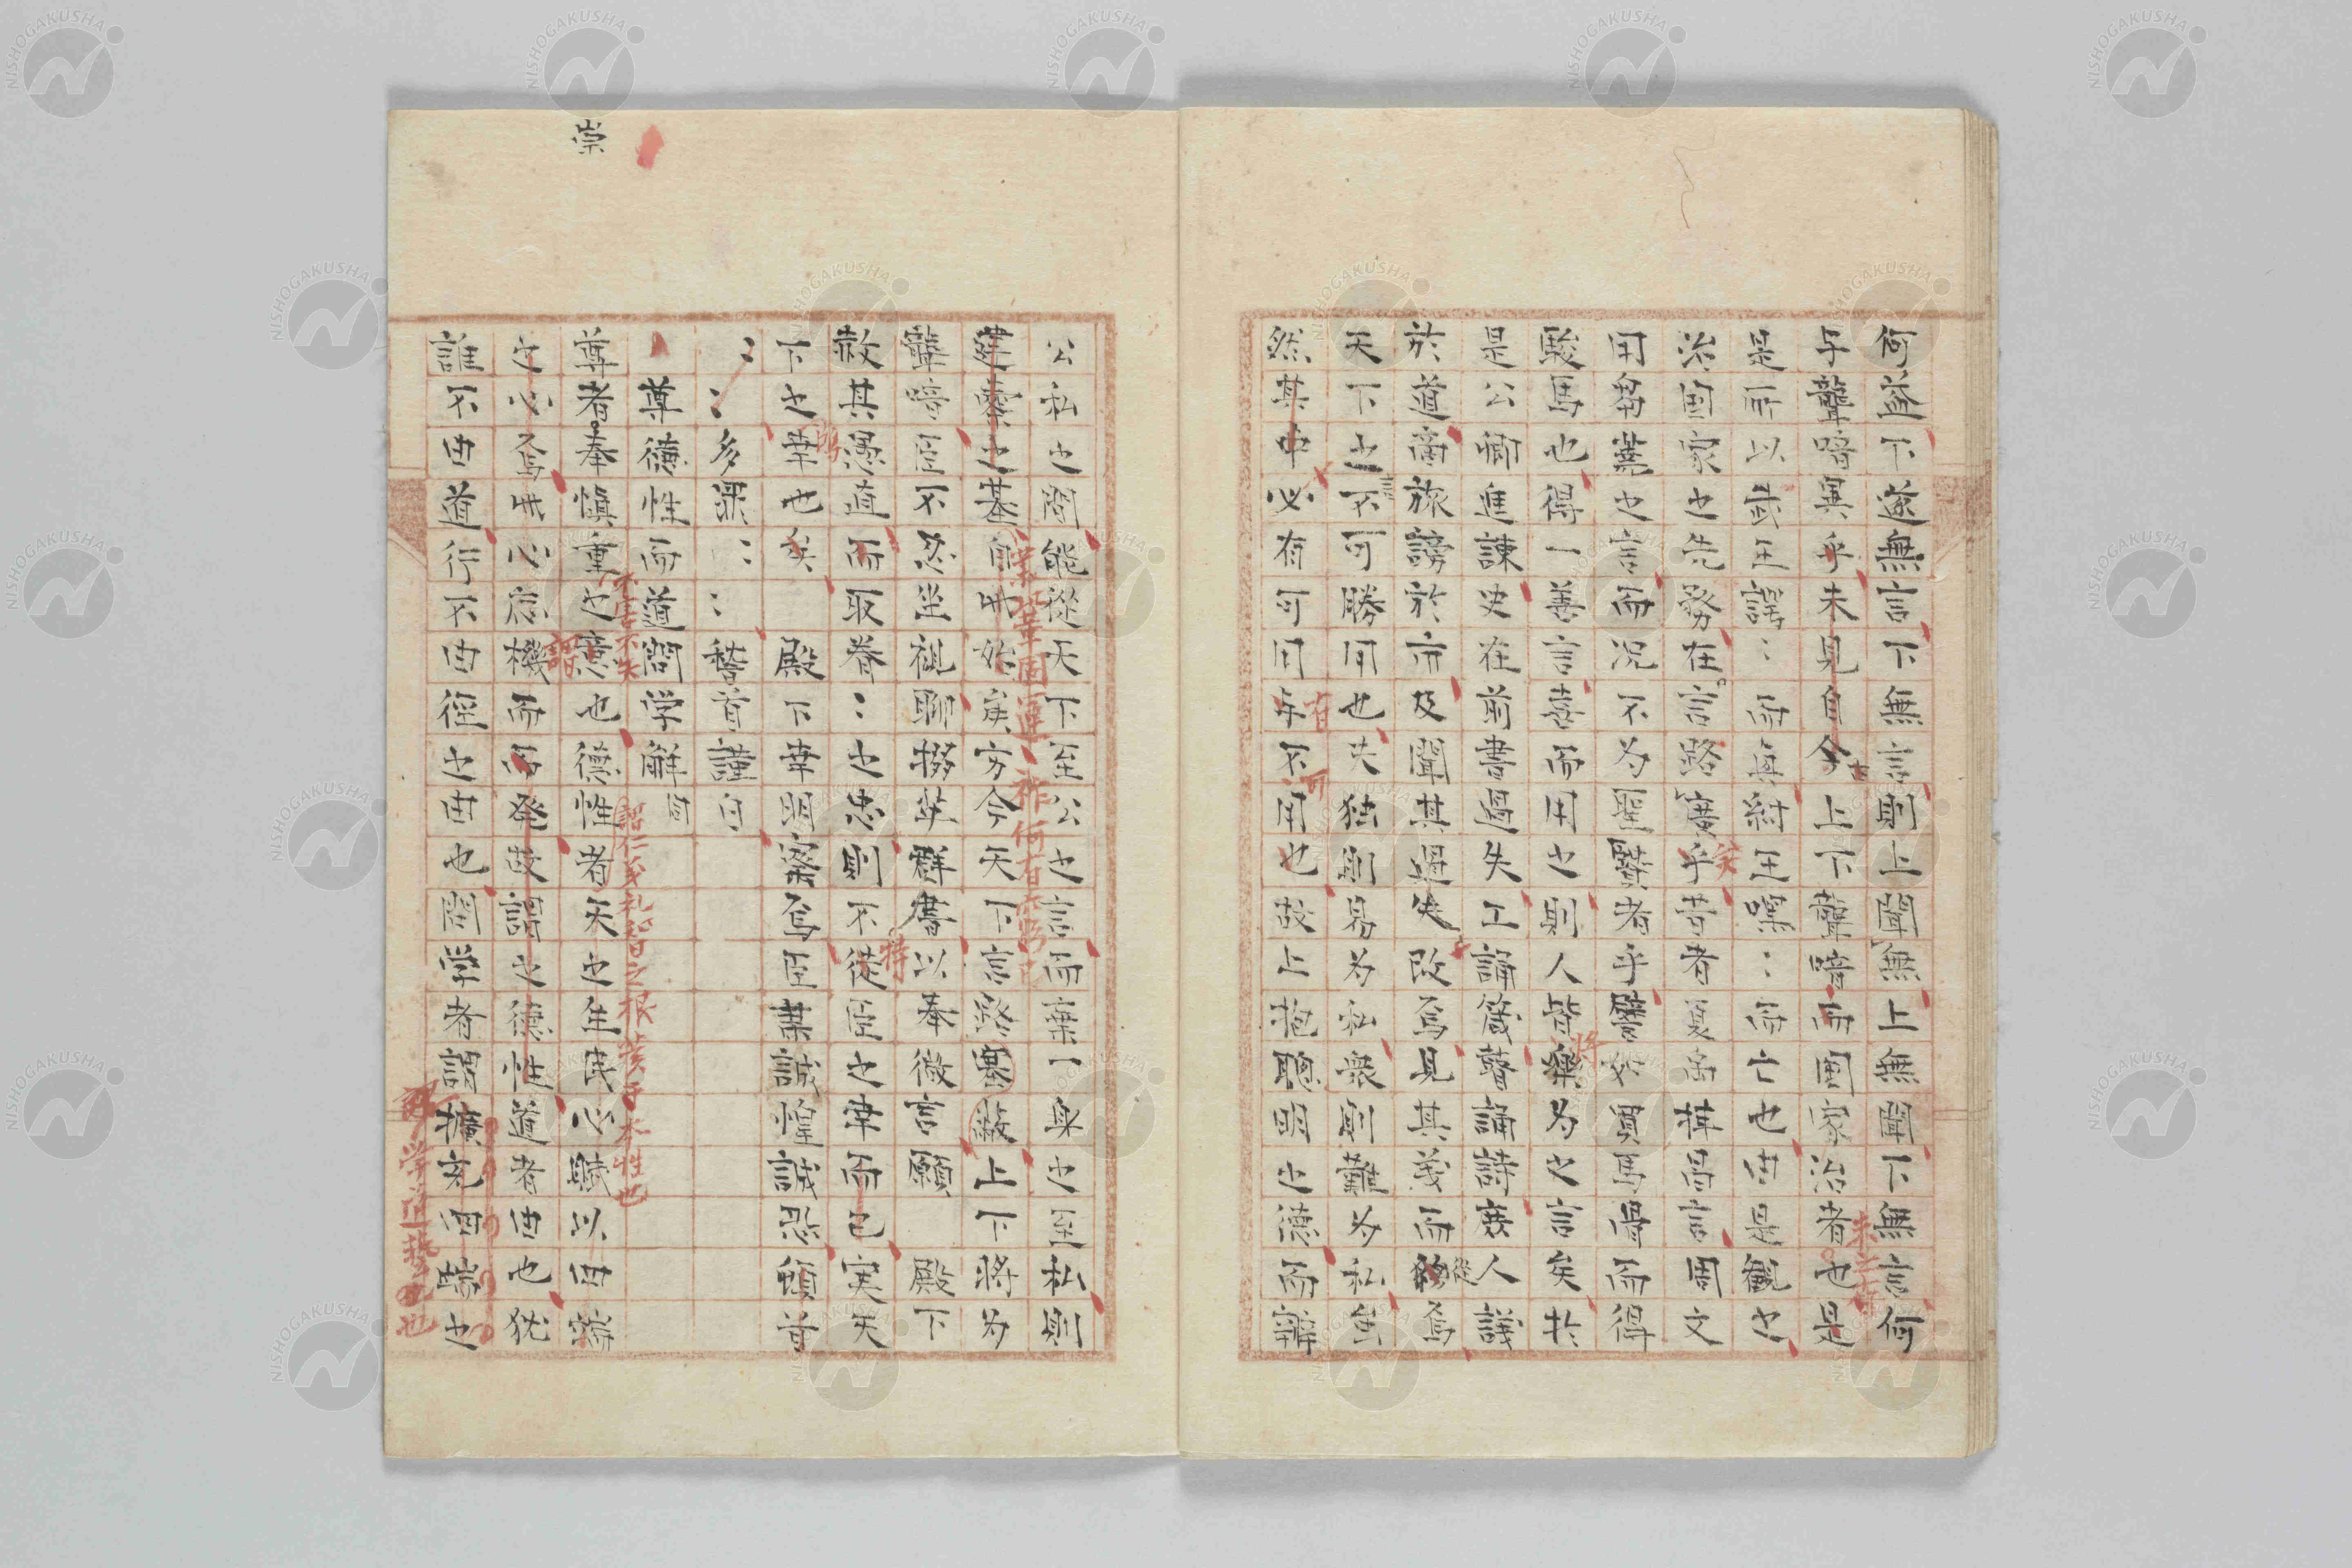 何益下遂無言下無言則上聞無上無聞下無言何
与聾喑異乎未見自今古上下聾喑而国家治者也是
是所以武王諤〻而興紂王嘿〻而亡也由是観之
治国家之先務在言路廣乎昔者夏禹拝昌言周文
用芻蕘之言而況不為聖賢者乎譬如買馬骨而得
駿馬也得一善言喜而用之則人皆樂為之言矣於
是公卿進諫史在前書過失工誦箴瞽誦詩庶人議
於道商旅謗於市及聞其過失改焉見其義而従焉
天下之言不可勝用也夫独則易為私衆則難為私
然其中必有可用与不用也故上抱聰明之徳而辯
公私之間能從天下至公之言而棄一身之至私則
建櫜之基自此始矣方今天下言路壅蔽上下將為
聾喑臣不忍坐視聊掇芊群書以奉微言願 殿下
赦其愚直而取眷〻之忠則不徒臣之幸而已実天
下之幸也矣 殿下幸明察焉臣某誠惶誠恐頓首
〻〻多罪〻〻 稽首謹白
尊徳性而道問学解
尊者奉慎重之意也徳性者天之生民心賦以四端
之心為此心應機而發故謂之徳性道者由也犹
誰不由道行不由徑之由也問学者謂擴充四端之
崇